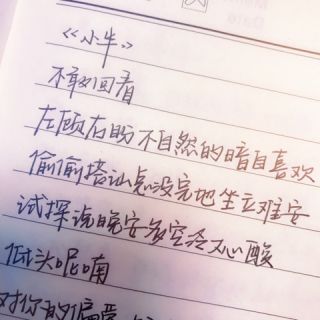 《小半》
不敢回看
左顾右盼不自然的暗自喜欢
偷偷搭讪总没完地坐立难安
试探说晚安多空泛又心酸
低头呢喃
对你的偏爱